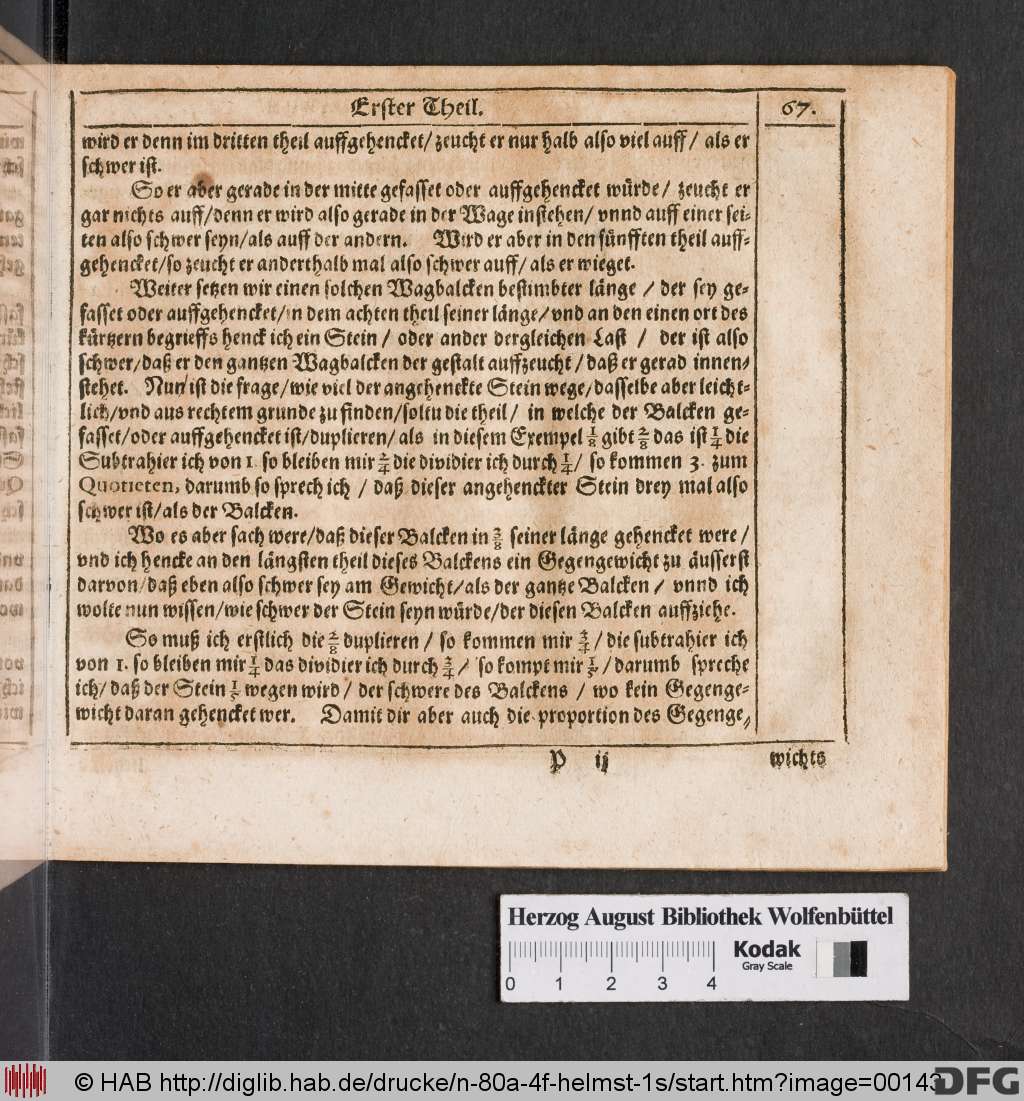 Erster Theil. 67.
wird er denn im dritten theil auffgehencket/ zeucht er nur halb also viel auff/ als er
schwer ist.
So er aber gerade in der mitte gefasset oder auffgehencket würde/ zeucht er
gar nichts auff/denn er wird also gerade in der Wage instehen/ vnnd auff einer sei-
ten also schwer seyn/als auff der andern. Wird er aber in den fünfften theil auff-
gehencket/so zeucht er anderthalb mal also schwer auff/ als er wieget.
Weiter setzen wir einen solchen Wagbalcken bestimbter länge / der sey ge-
fasset oder auffgehencket/in dem achten theil seiner länge/vnd an den einen ort des
kürtzern begrieffs henck ich ein Stein / oder ander dergleichen Last / der ist also
schwer/daß er den gantzen Wagbalcken der gestalt auffzeucht/ daß er gerad innen-
stehet. Nun ist die frage/wie viel der angehenckte Stein wege/dasselbe aber leicht-
lich/vnd aus rechtem grunde zu finden/soltu die theil/ in welche der Balcken ge-
fasset/oder auffgehencket ist/duplieren/als in diesem Exempel 1/8 gibt 2/8 das ist 1/4 die
Subtrahier ich von 1. so bleiben mir 3/4 die dividier ich durch 1/4/ so kommen 3. zum
Quotieten, darumb so sprech ich / daß dieser angehenckter Stein drey mal also
schwer ist/als der Balcken.
Wo es aber sach were/daß dieser Balcken in 3/8 seiner länge gehencket were/
vnd ich hencke an den längsten theil dieses Balckens ein Gegengewicht zu äusserst
darvon/daß eben also schwer sey am Gewicht/als der gantze Balcken / vnnd ich
wolte nun wissen/wie schwer der Stein seyn würde/der diesen Balcken auffziehe.
So muß ich erstlich die 3/8 duplieren / so kommen mir 3/4/ die subtrahier ich
von 1. so bleiben mir 1/4 das dividier ich durch 3/4/ so kompt mir 1/3/ darumb spreche
ich/ daß der Stein 1/3 wegen wird/ der schwere des Balckens / wo kein Gegenge-
wicht daran gehencket wer. Damit dir aber auch die proportion des Gegenge-
P ij wichts
Herzog August Bibliothek Wolfenbüttel
Kodak
Gray Scale
0 1 2 3 4
© HAB http://diglib.hab.de/drucke/n-80a-4f-helmst-1s/start.htm?image=00143
DFG